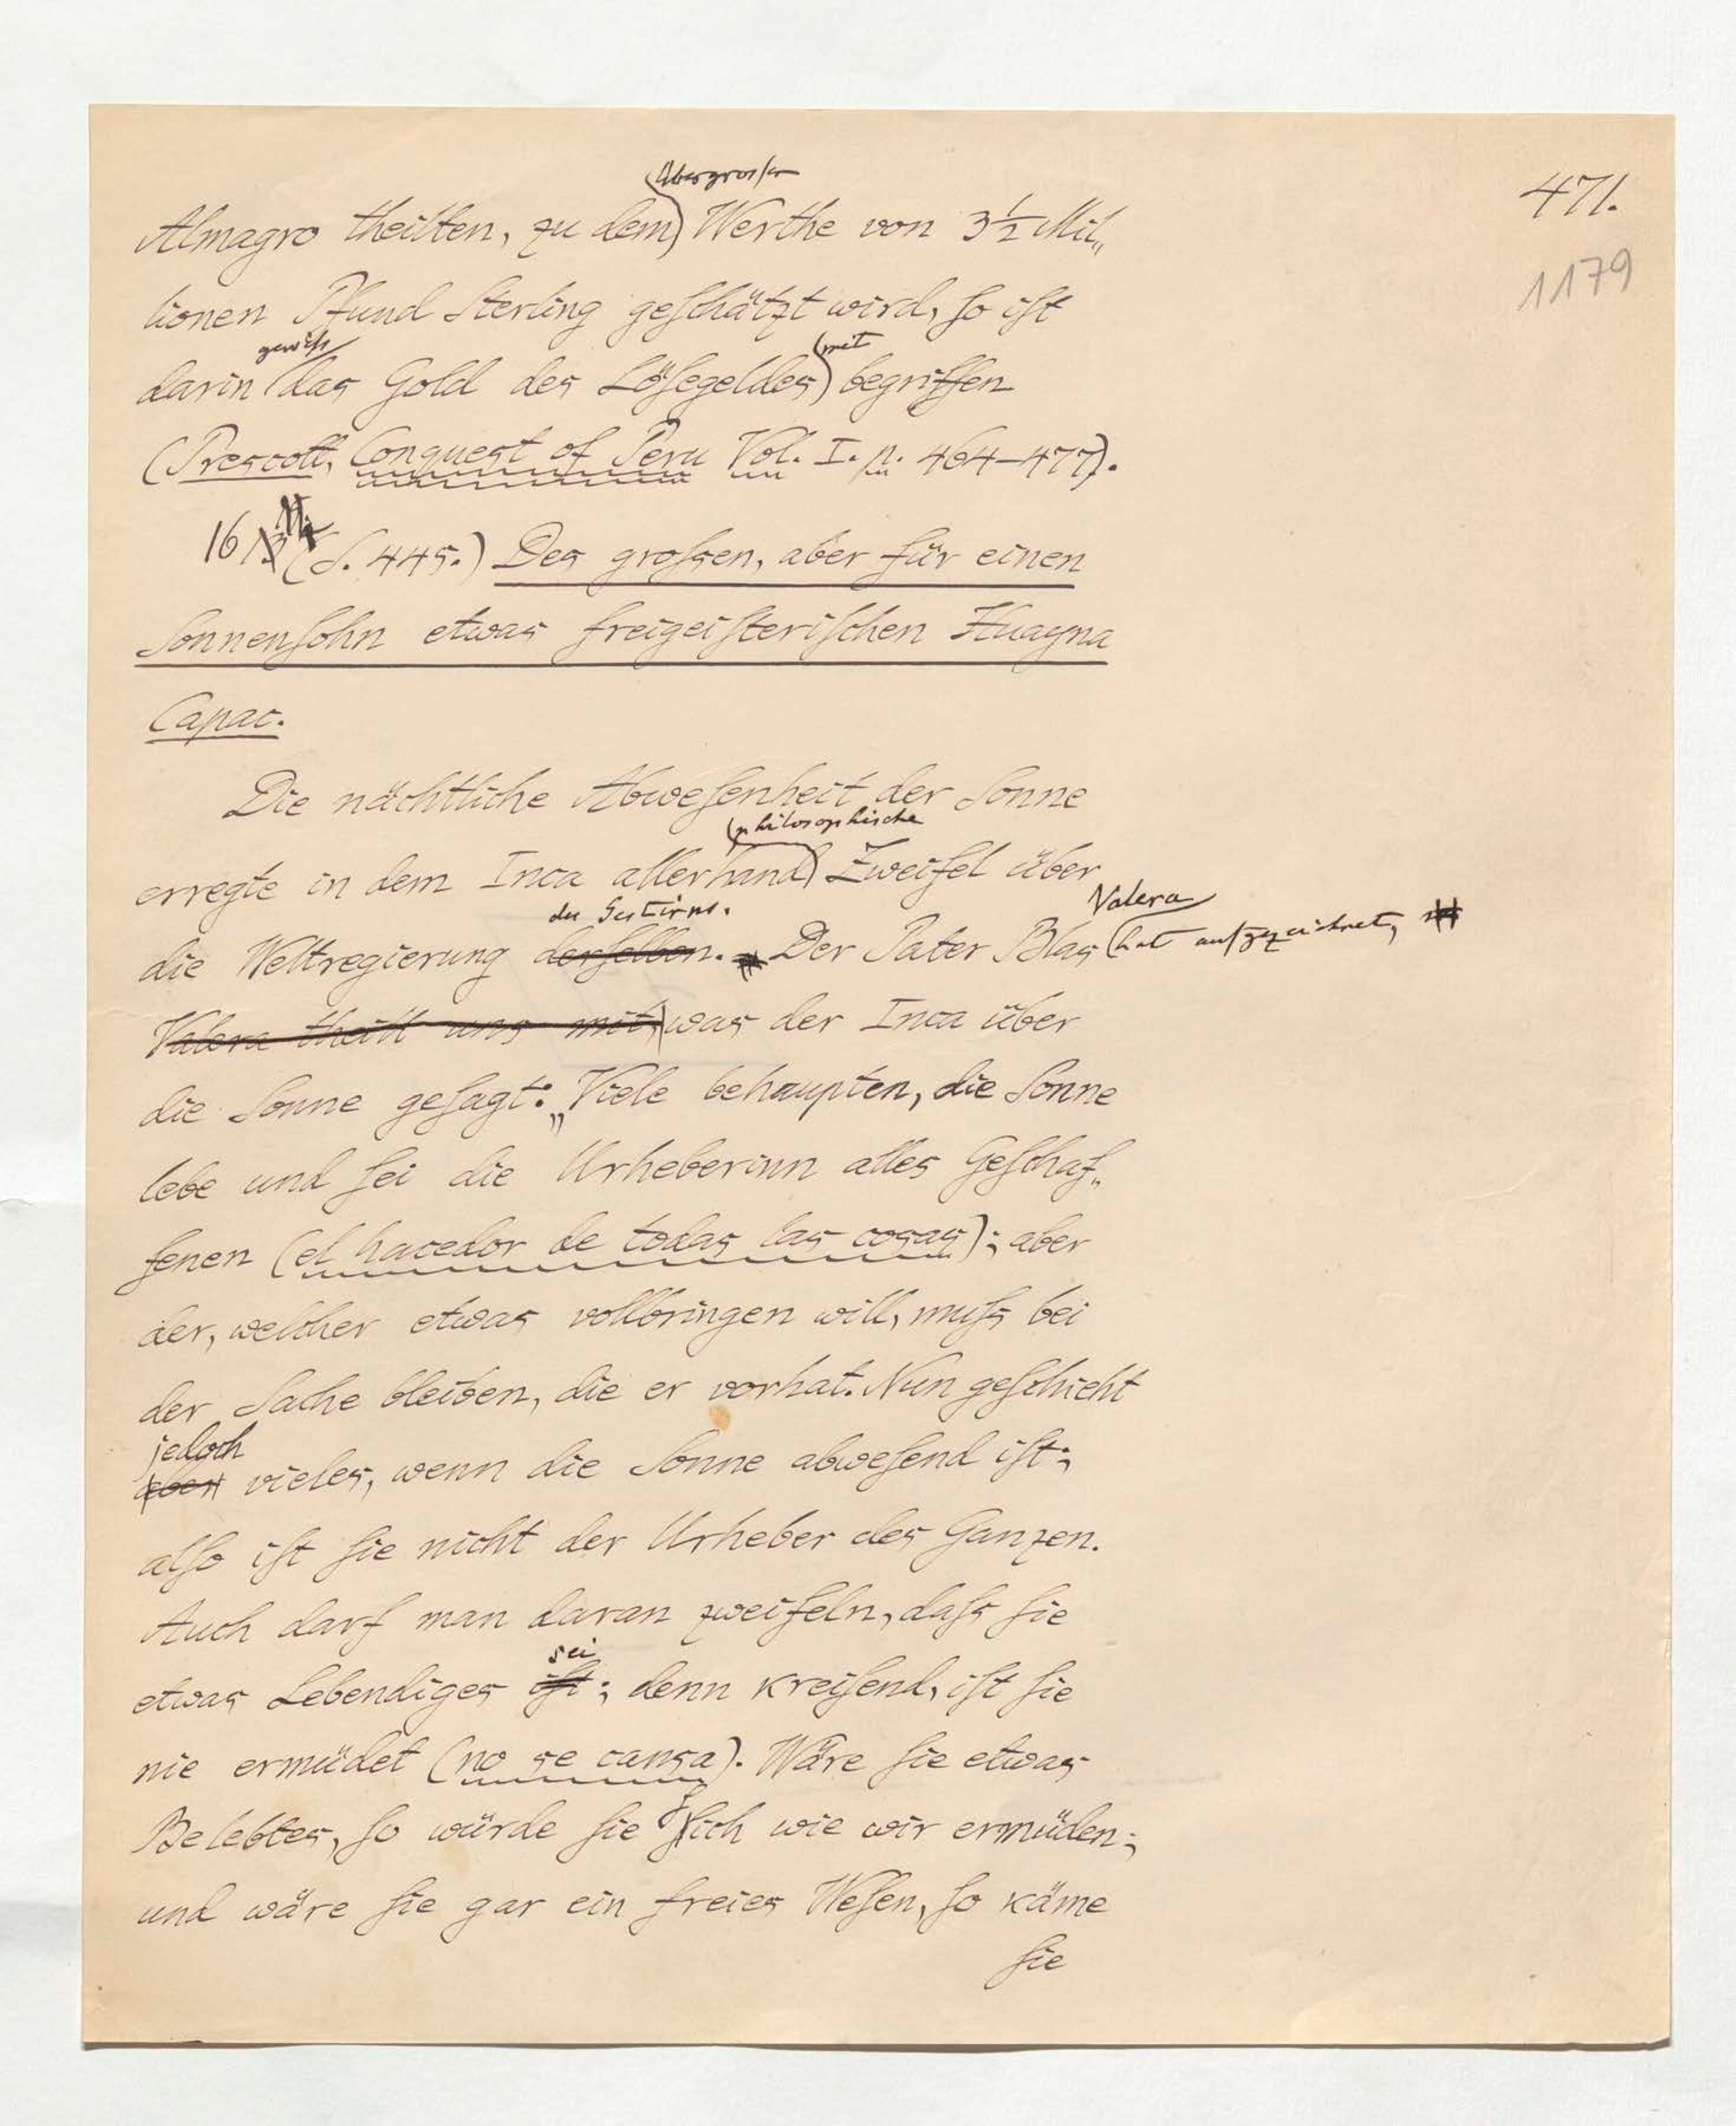 471.
1179
(übergrossen
Almagro theilten, zu dem) Werthe von 3½ Mil„
lionen Pfund Sterling geſchätzt wird, ſo iſt
gewiſs (mit
darin das Gold des Löſegeldes) begriffen
(Prescott, Conquest of Peru Vol. I. p. 464–477).
16 (S. 445.) Des groſsen, aber für einen
Sonnenſohn etwas freigeiſteriſchen Huayna
Capac.
Die nächtliche Abweſenheit der Sonne
(philosophische
erregte in dem Inca allerhand) Zweifel über
des Gestirns. Valera
die Weltregierung derſelben. Der Pater Blas (hat aufgezeichnet,
Valera theilt uns mit, was der Inca über
die Sonne geſagt: „Viele behaupten, die Sonne
lebe und ſei die Urheberinn alles Geſchaf„
fenen (el hacedor de todas las cosas); aber
der, welcher etwas vollbringen will, muſs bei
der Sache bleiben, die er vorhat. Nun geſchieht
jedoch
aber vieles, wenn die Sonne abweſend iſt;
alſo iſt ſie nicht der Urheber des Ganzen.
Auch darf man daran zweifeln, daſs ſie
sei
etwas Lebendiges iſt; denn kreiſend, iſt ſie
nie ermüdet (no se cansa). Wäre ſie etwas
Belebtes, ſo würde ſie ſich wie wir ermüden;
und wäre ſie gar ein freies Weſen, ſo käme
ſie